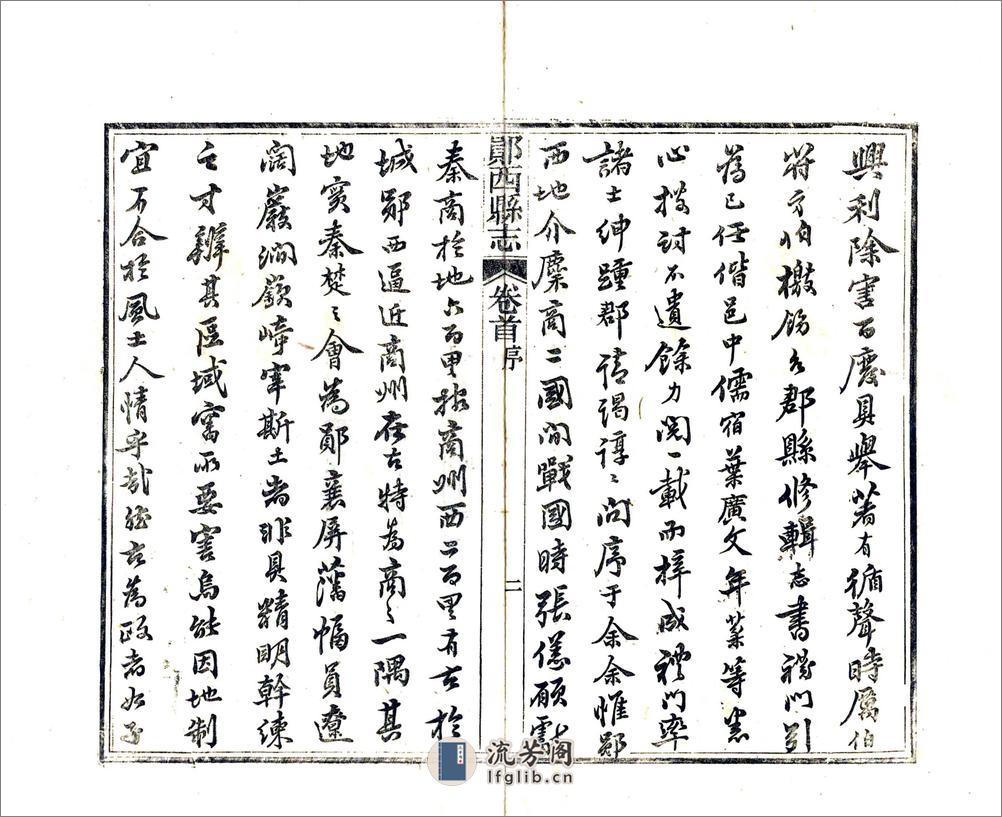 興利除害百廢具舉著有循聲時屬伯
符方伯檄飭各郡縣修輯志書禊門引
為已任偕邑中儒宿葉廣文年棻等悉
心搜討不遺餘力閱一載而梓成禊門率
諸士紳踵郡請謁諄〻問序于余余惟鄖
西地介麇商二國間戰國時張儀願獻
鄖西縣志 卷首 序 二
秦商於地六百里按商州西二百里有古於
城鄖西逼近商州在古特為商之一隅其
地實秦楚〻會為鄖襄屏藩幅員遼
闊巖澗嶔崎宰斯土者非具精明幹練
之才辨其區域審所要害烏能因地制
宜不合於風土人情乎哉從古為政者如
流芳阁
lfglib.cn